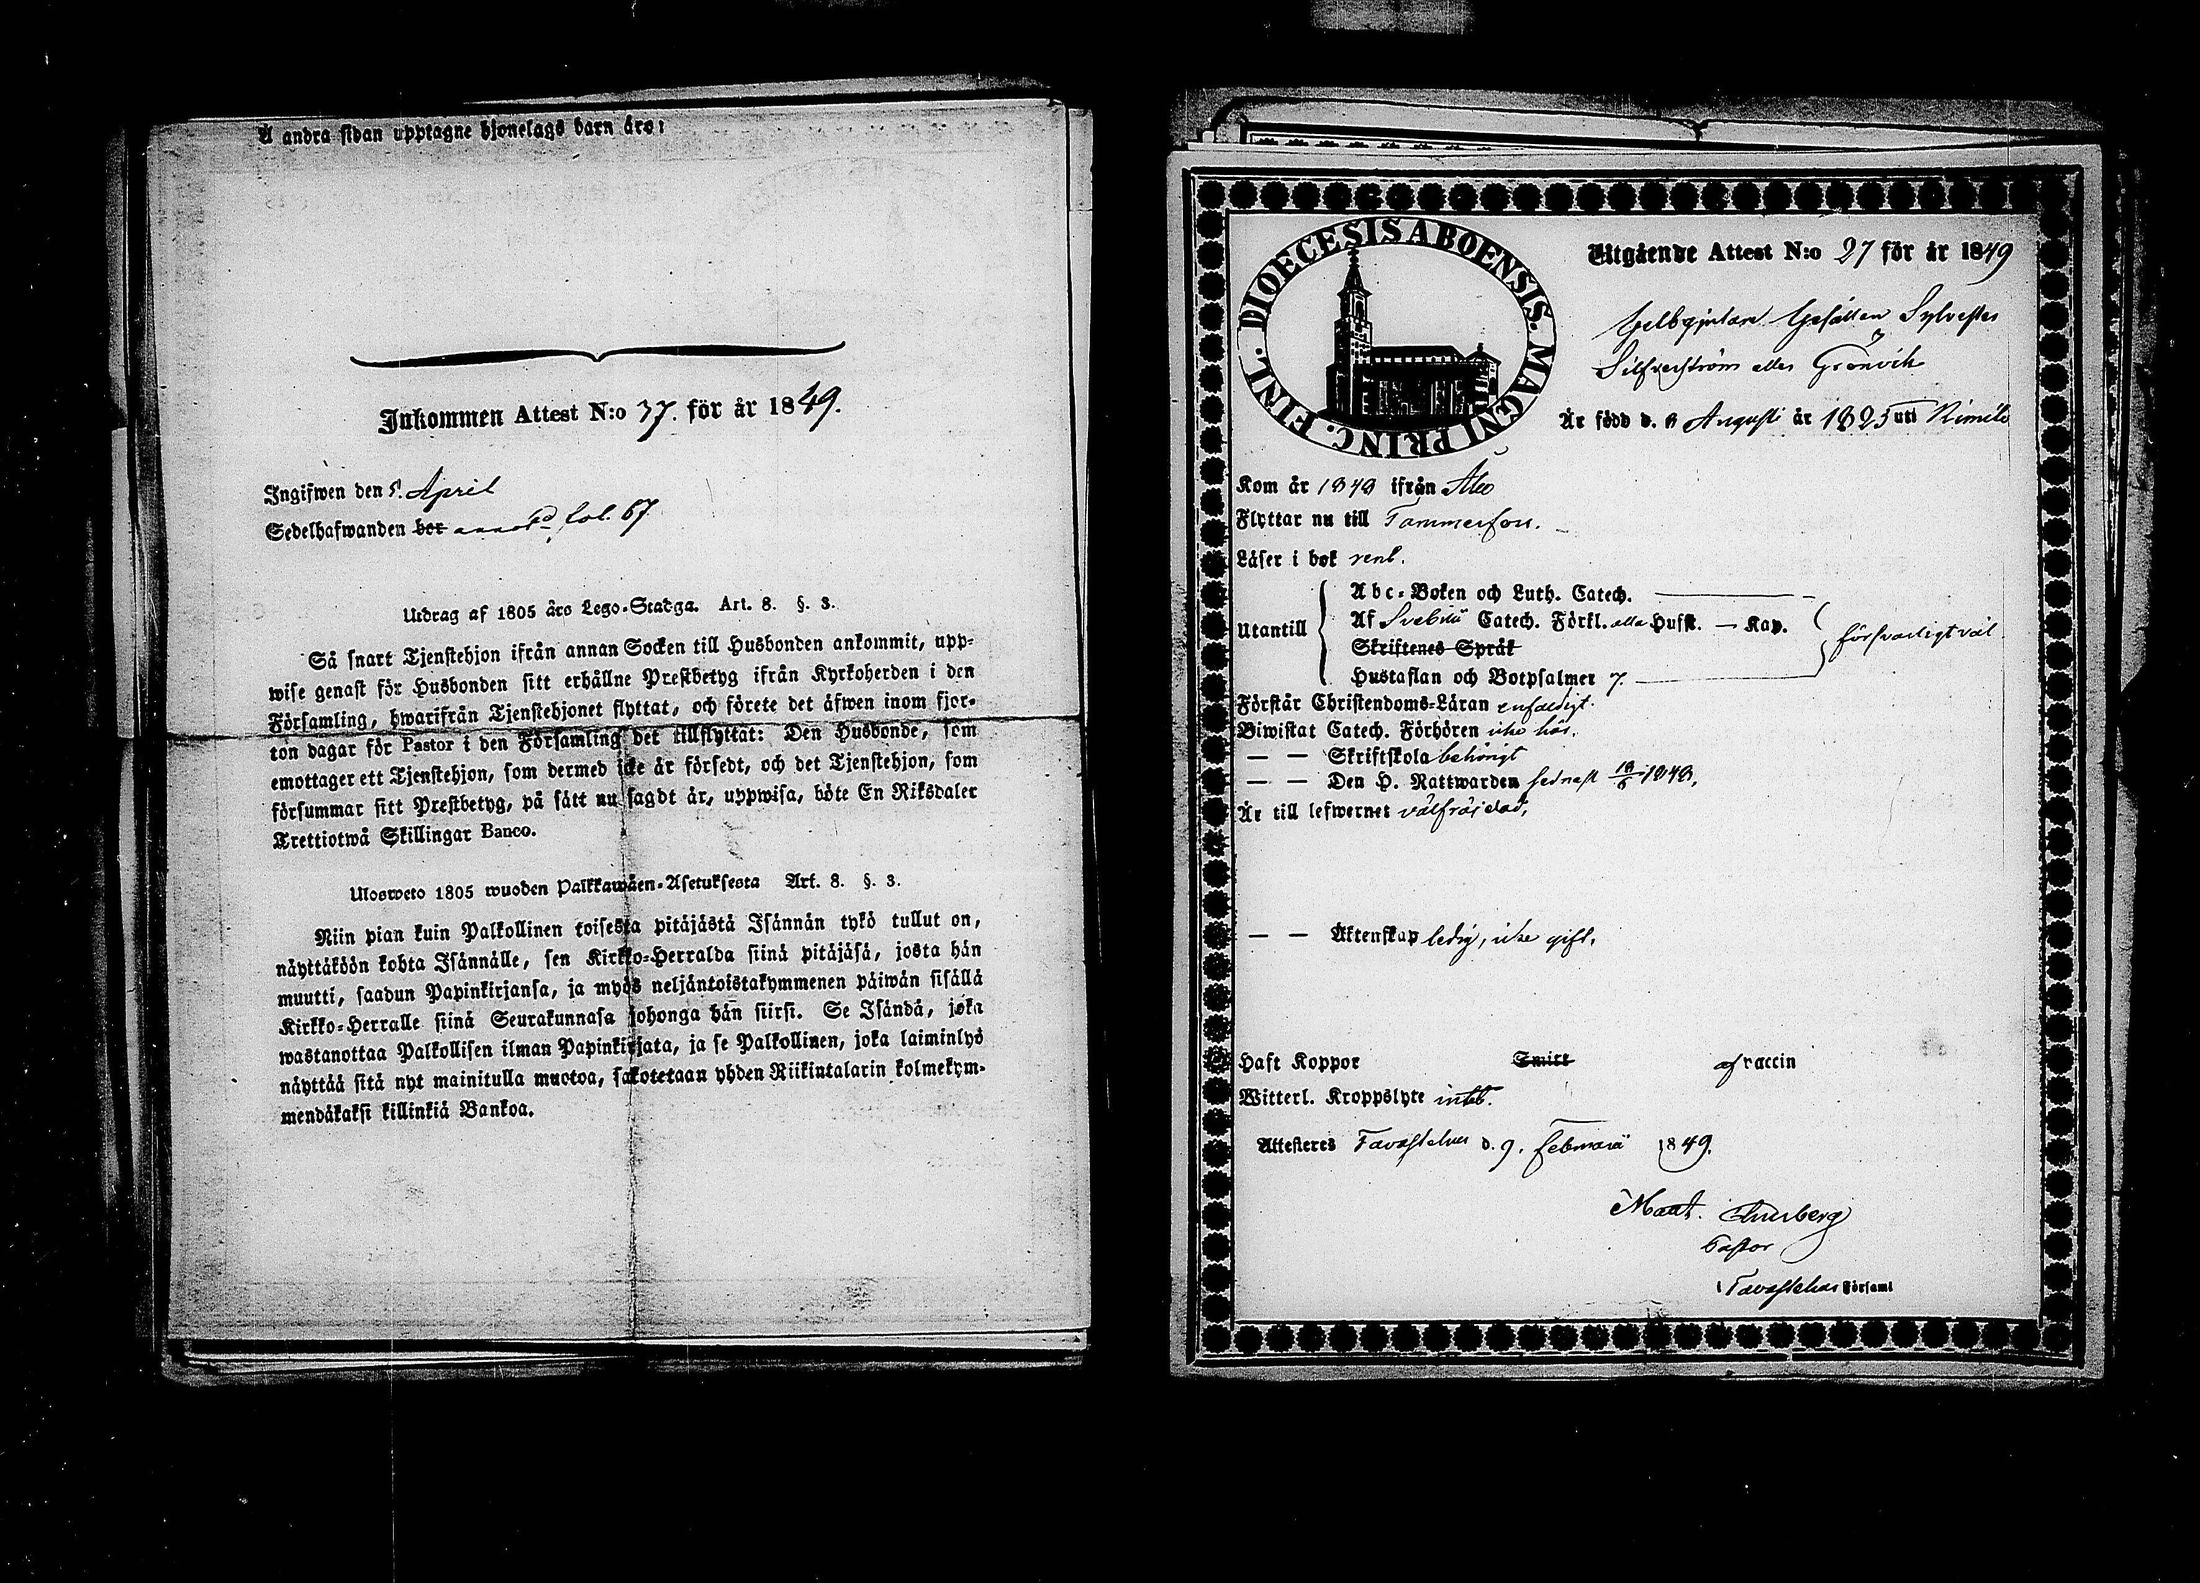 Å andra sidan upptagne hjonelags barn äro:
Inkommen Attest N:o 37. för år 1849.
Ingifwen den 5. April
Sedelhafwanden bor annot. fol. 67
Utdrag af 1805 års Lego-Stadga. Art. 8. §. 3.
Så snart Tjenstehjon ifrån annan Socken till Husbonden ankommit, upp-
wise genast för Husbonden sitt erhållne Prestbetyg ifrån Kyrkoherden i den
Församling, hwarifrån Tjenstehjonet flyttat, och förete det äfwen inom fjor-
ton dagar för Pastor i den Församling det tillflyttat: Den Husbonde, som
emottager ett Tjenstehjon, som dermed icke är försedt, och det Tjenstehjon, som
försummar sitt Prestbetyg, på sätt nu sagdt är, uppwisa, böte En Riksdaler
Trettiotwå Skillingar Banco.
Ulosweto 1805 wuoden Palkkawäen-Asetuksesta Art. 8. §. 3.
Niin pian kuin Palkollinen toisesta pitäjästä Isännän tykö tullut on,
näyttäköön kohta Isännälle, sen Kirkko-Herralda siinä pitäjäsä, josta hän
muutti, saadun Papinkirjansa, ja myös neljäntoistakymmenen päiwän sisällä
Kirkko-Herralle siinä Seurakunnasa johonga hän siirsi. Se Isändä, joka
wastanottaa Palkollisen ilman Papinkirjata, ja se Palkollinen, joka laiminlyö
näyttää sitä nyt mainitulla muotoa, sakotetaan yhden Riikintalarin kolmekym-
mendäkaksi killinkiä Bankoa.
DIOECESIS ABOENSIS. MAGNI PRINC. FINL.
Utgående Attest N:o 27 för år 1849
Gelbgjutare Gesällen Sylvester
Silfverström eller Grönvik
Är född d. 8 Augusti år 1825 uti Rimito
Kom år 1848 ifrån Åbo
Flyttar nu till Tammerfors.
Läser i bok rent.
Utantill
Abc-Boken och Luth. Catech.
Af Svebilii Catech. Förkl. alla Hufst. — Kap.
Skriftenes Språk
Hustaflan och Botpsalmer 7.
försvarligt väl
Förstår Christendoms-Läran enfaldigt.
Biwistat Catech. Förhören icke här.
— — Skriftskola behörigt
— — Den H. Nattwarden sednast 18/6 1848,
Är till lefwernet välfräjdad,
— — Äktenskap ledig, icke gift.
Haft Koppor Smitt af vaccin
Witterl. Kroppslyte intet.
Attesteres Tavastehus d. 9. Februarii 1849.
Pastor
Tavastehus Församl